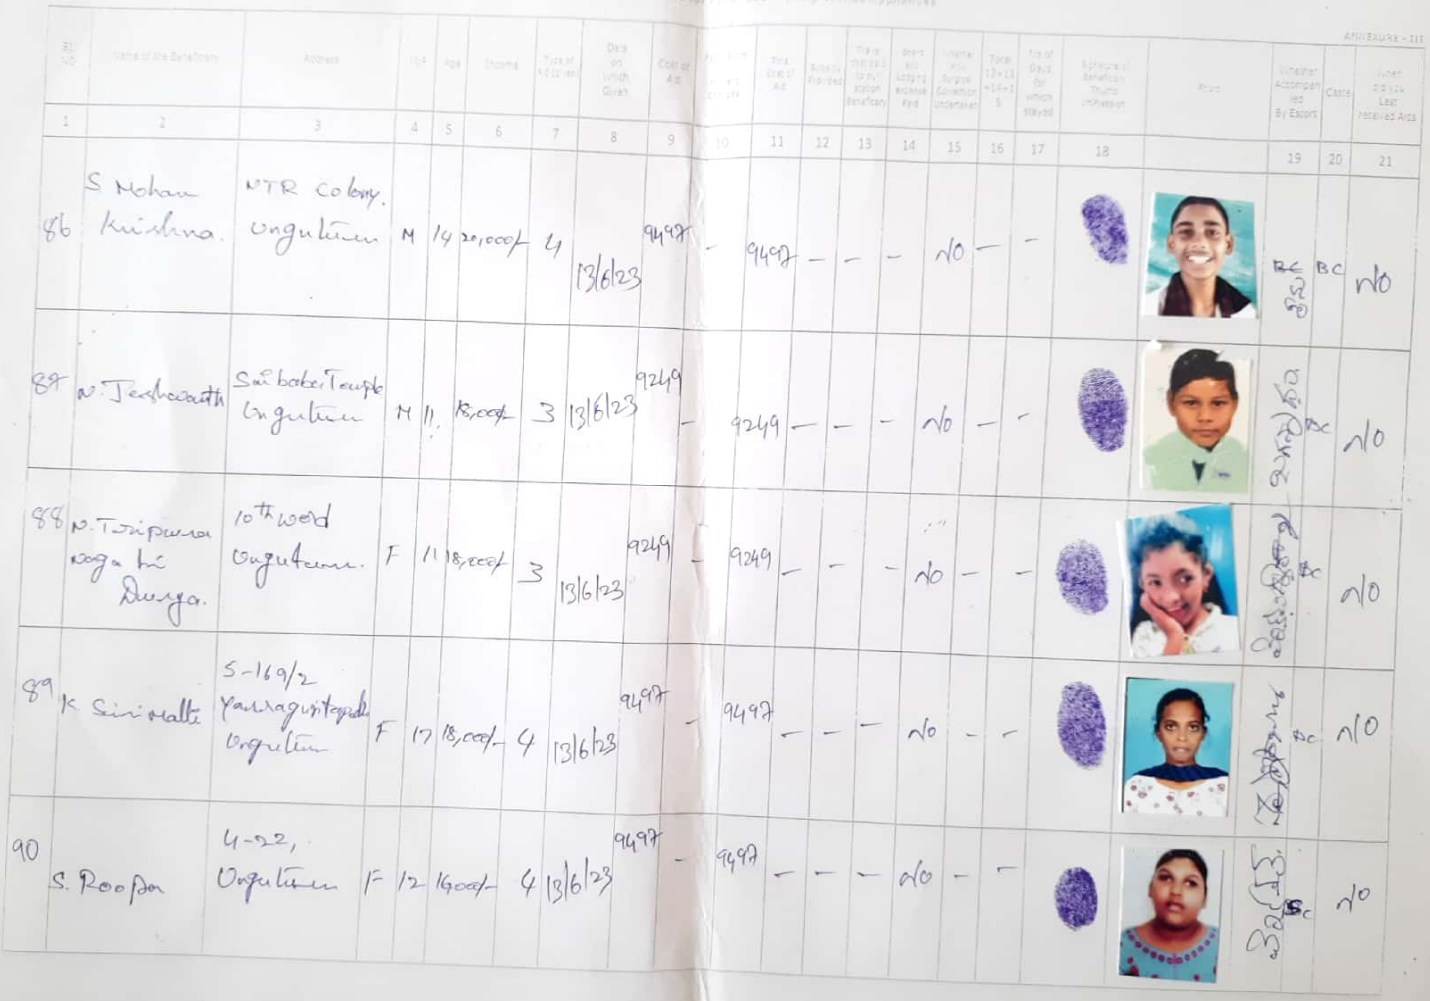 ANNEXURE - III
Name of the Beneficiary Address Age Income Type of Aid (given) Date on Which Given Cost of Aid Total Cost of Aid Subsidy Provided Board and Lodging expense Paid Whether Any Surgical Correction Undertaken Total 12+13+14+15 No of Days for which stayed Signature of Beneficiary Thumb Impression Photo Whether Accompanied By Escort Caste Last received Aids
1 2 3 4 5 6 7 8 9 10 11 12 13 14 15 16 17 18 19 20 21
86 S Mohan Krishna. NTR Colony. Unguturu M 14 20,000/- 4 13/6/23 9497 - 9497 - - - NO - - BC NO
87 N. Jeshwanth Sai baba Temple Unguturu M 11. 18,000/- 3 13/6/23 9249 - 9249 - - - NO - - BC NO
88 N. Tripura naga Sri Durga. 10th word Unguturu. F 11 18,000/- 3 13/6/23 9249 - 9249 - - - NO - - BC NO
89 K Siri Malli 5-169/2 Unguturu F 17 18,000/- 4 13/6/23 9497 - 9497 - - - NO - - BC NO
90 S. Roopa 4-22, Unguturu F 12 4 13/6/23 9497 - 9497 - - - NO - - NO